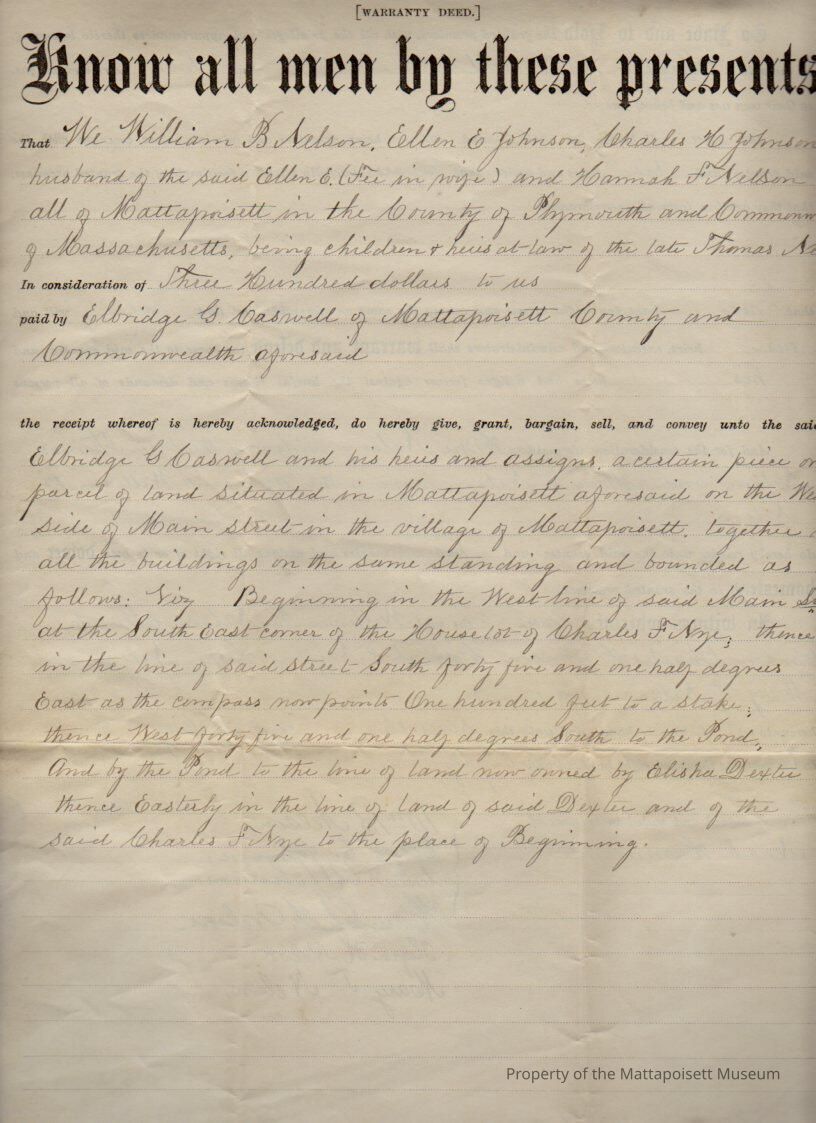 [WARRANTY DEED.]
Know all men by these presents
That We William B Nelson, Ellen E Johnson, Charles H Johnson
husband of the said Ellen E. (Fee in wife) and Hannah F Nelson
all of Mattapoisett in the County of Plymouth and Commonw
of Massachusetts, being children & heirs at law of the late Thomas Ne
In consideration of Three Hundred dollars to us
paid by Elbridge G. Caswell of Mattapoisett County and
Commonwealth aforesaid
the receipt whereof is hereby acknowledged, do hereby give, grant, bargain, sell, and convey unto the said
Elbridge G Caswell and his heirs and assigns, a certain piece or
parcel of land situated in Mattapoisett aforesaid on the We
side of Main street in the village of Mattapoisett, together
all the buildings on the same standing and bounded as
follows: Viz Beginning in the West line of said Main St
at the South East corner of the House lot of Charles F Nye; thence
in the line of said street South forty five and one half degrees
East as the compass now points One hundred feet to a stake;
thence West forty five and one half degrees South to the Pond,
And by the Pond to the line of land now owned by Elisha Dexter
thence Easterly in the line of land of said Dexter and of the
said Charles F Nye to the place of Beginning.
Property of the Mattapoisett Museum